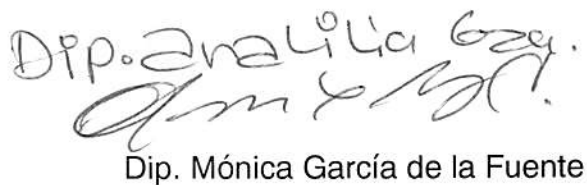 Dip. analilia Gza.
Dip. Mónica García de la Fuente